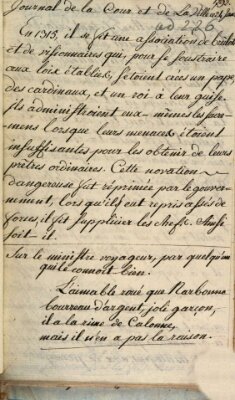 Journal de la Cour et de la Ville
En 1315, il se fit une association de
et de visionnaires qui, pour se soustraire
aux lois établies, se étoient crées un pape
des cardineux, et un roi à leur guise
ils administroient eux-mêmes les sacre-
mens lorsque leurs menaces étoient
insuffisantes pour les obtenir de leurs
prêtres ordinaires. Cette novation
dangereuse fut réprimée par le gouver-
nement, lors qu'il eut repris assés de
forces, il fit supplicier les chefs. Ainsi
soit-il.
Sur le ministre voyageur, par quelqu'un
qui le connoît bien.
L'aimable roué que Narbonne
bourreau d'argent, joli garçon,
il a la rime de Calonne,
mais il n'en a pas la raison.